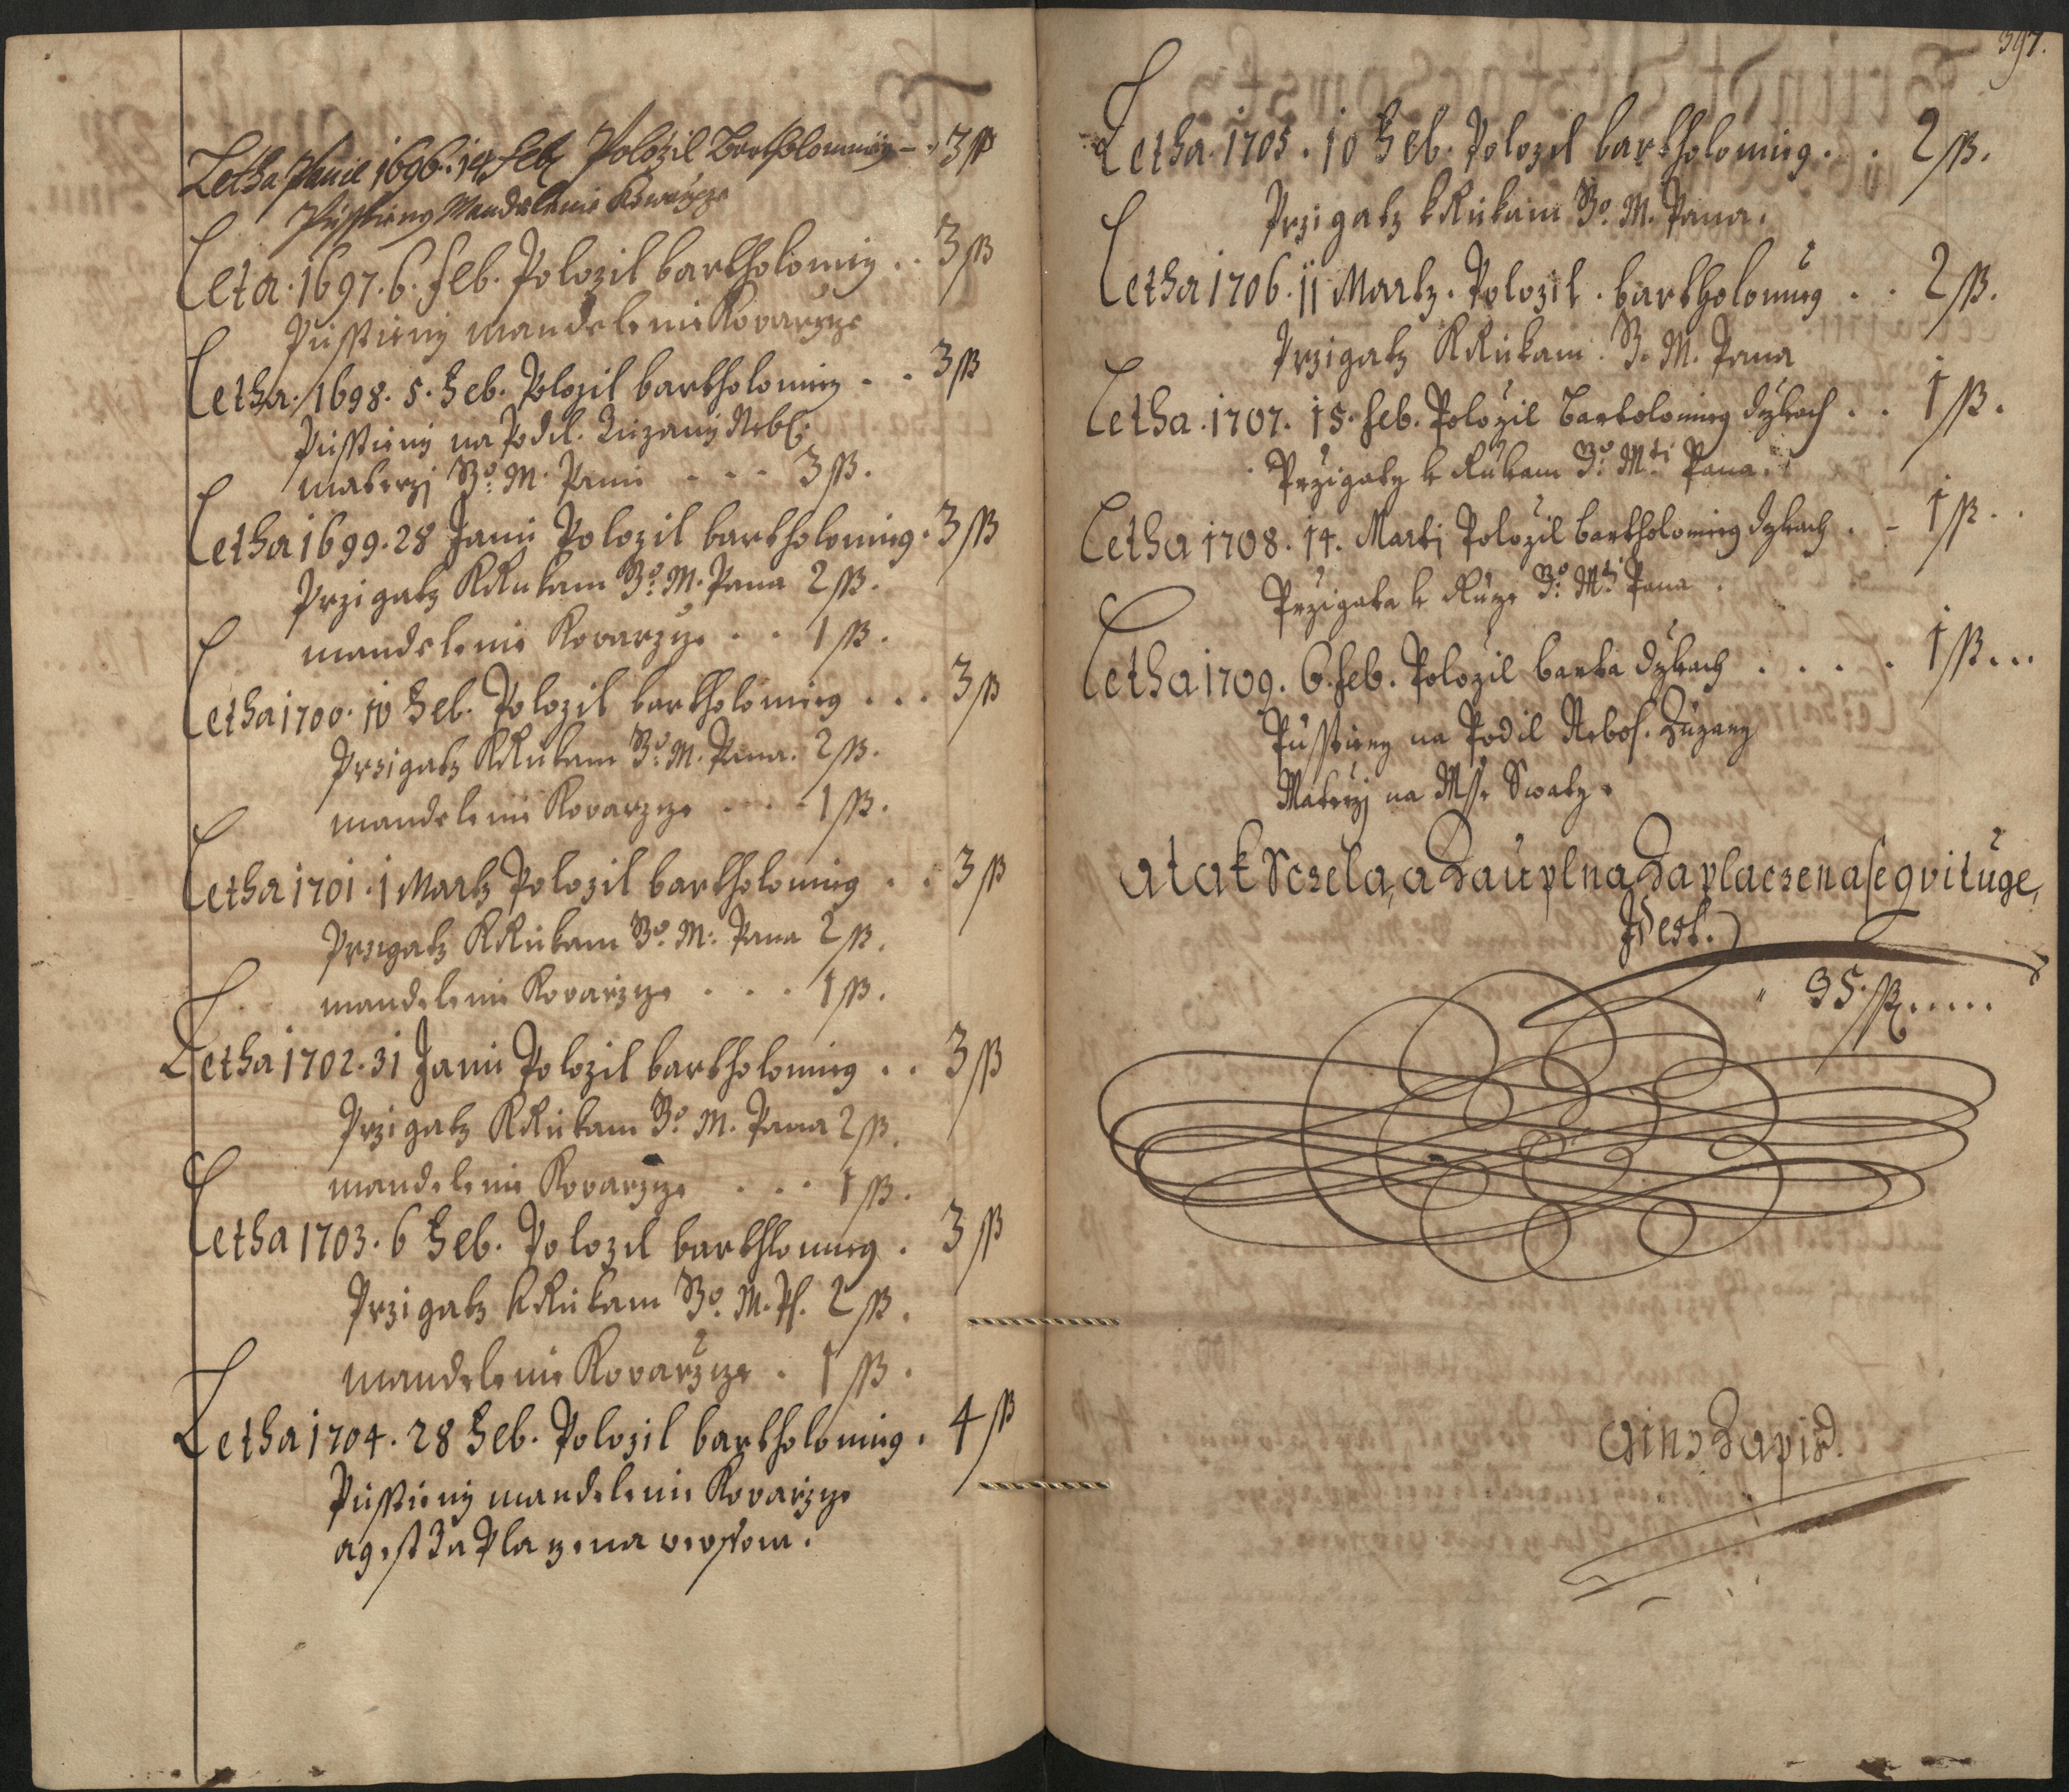 Letha Panie 1696. 14 Feb. Polozil Bartholomieg – . 3 ß
Pusstieny Mandeleni Kowarzze
Leta. 1697. 6. Feb. Polozil bartholomieg . . 3 ß
Pusstieny mandeleni Kovarzyze
Letha. 1698. 5. Feb. Polozil bartholomieg . . 3 ß
Pusstieny na Podil. Zuzany Nebl.
materzj Jº: M. Panu . . . 3 ß.
Letha 1699. 28 Janu Polozil bartholomieg . 3 ß
Przigatz KRukam Jº: M. Pana 2 ß.
mandeleni Kovarzyze . . 1 ß.
Letha 1700. 10 Feb. Polozil bartholomieg . . . 3 ß
Przigatz KRukam Jº: M. Pana. 2 ß.
mandeleni Kovarzyze . . . . 1 ß.
Letha 1701. 1 Martz Polozil bartholomieg . . 3 ß
Przigatz KRukam Jº. M: Pana 2 ß.
mandeleni Kovarzyze . . . 1 ß.
Letha 1702. 31 Janu Polozil bartholomieg . . 3 ß
Przigatz KRukam Jº. M. Pana 2 ß.
mandeleni Kovarzyze . . . 1 ß.
Letha 1703. 6 Feb. Polozil barthlomieg . 3 ß
Przigatz kRukam Jº. M. P. 2 ß.
mandeleni Kovarzyze . 1 ß.
Letha 1704. 28 Feb. Polozil bartholomieg . 4 ß
Pusstieny mandeleni Kovarzyze
agest Za Pla zena
397.
Letha. 1705. 10 Feb. Polozil bartholomieg . . 2 ß.
Przigatz kRukam Jº. M. Pana.
Letha 1706. 11 Martz. Polozil. bartholomieg . . 2 ß.
Przigatz KRukam. J. M. Pana
Letha. 1707. 15. Feb. Polozil Bartolomieg dzbach . . 1 ß.
Przigaty k Rukam Jº: Mti Pana.
Letha 1708. 14. Martj Polozil bartholomieg dzbach . – 1 ß . .
Przigata k Ruze Jº: Mti Pana .
Letha 1709. 6. Feb. Polozil barta dzbach . . . . 1 ß . . .
Pusstieny na Podil Nebos. Zuzany
Materzj na Msse Swaty.
A tak Sczela, a Zauplna Zaplaczena se qvituge,
Idest.
35. ß . . . . .